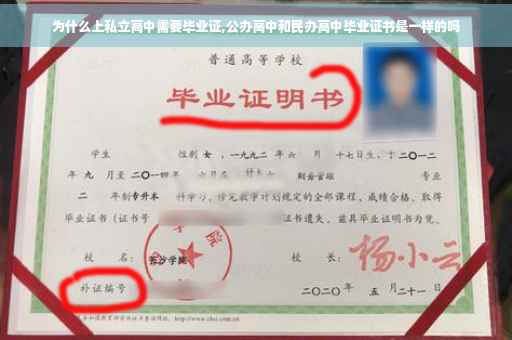 为什么上私立高中需要毕业证,公办高中和民办高中毕业证书是一样的吗
普通高等学校
毕业证明书
学生 性别 女 ,一九九二 年 六 月 十七日生，于 二〇一二
年 九 月至 二〇一四 年 六月在 财务管理 专业
二 年制 专升本 科学习，修完教学计划规定的全部课程，成绩合格，取得
毕业证书（证书号 证书遗失，兹具毕业证明书为凭。
校 名： 长沙学院 校 长： 杨小云
补证编号 二〇二〇年 五 月二十一日